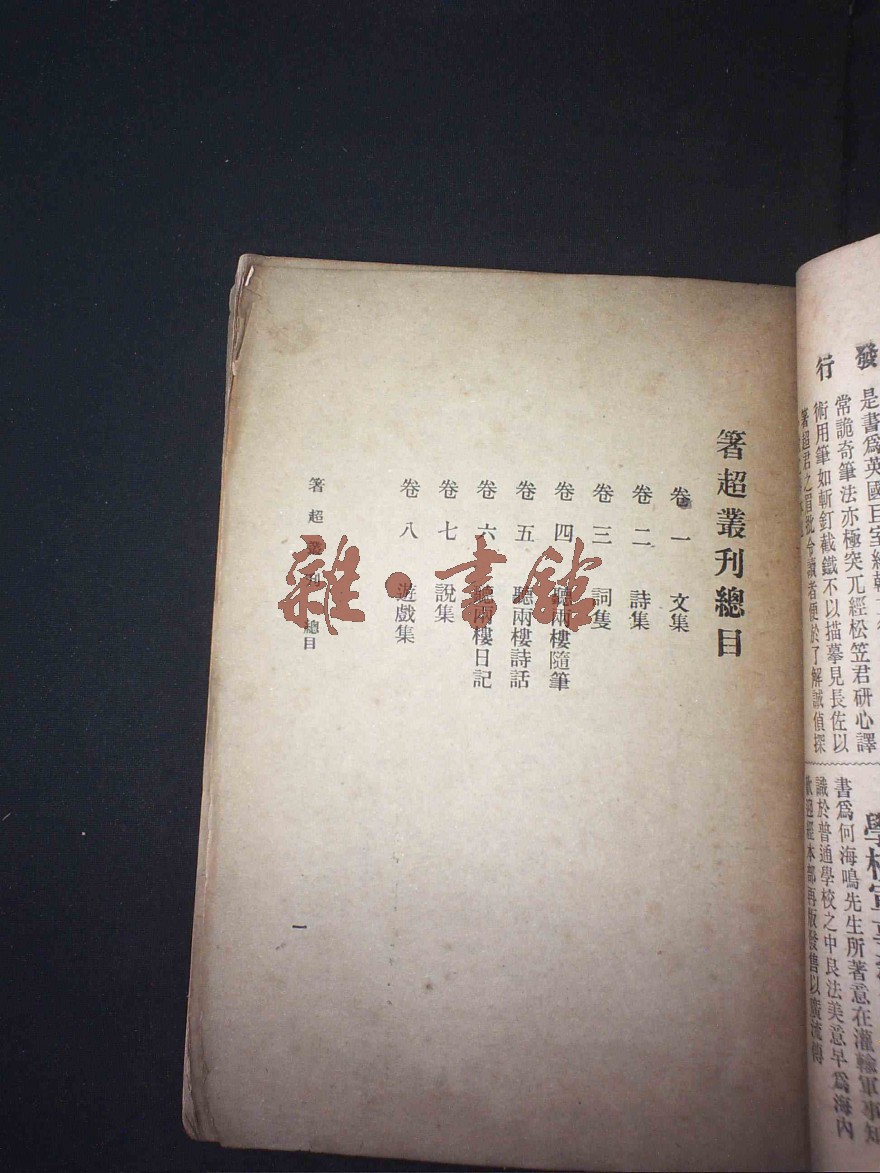 發
行
是書爲英國巨室
常詭奇筆法亦極突兀經松笠君研心譯
術用筆如斬釘截鐵不以描摹見長佐以
箸超君之眉批令讀者便於了解誠偵探
學校軍事
書爲何海鳴先生所著意在灌輸軍事知
識於普通學校之中良法美意早爲海內
歡迎經本部再版發售以廣流傳
箸超叢刊總目
卷一 文集
卷二 詩集
卷三 詞隻
卷四 聽兩樓隨筆
卷五 聽兩樓詩話
卷六 聽兩樓日記
卷七 說集
卷八 遊戲集
箸超叢刊 總目
一
雜·書館